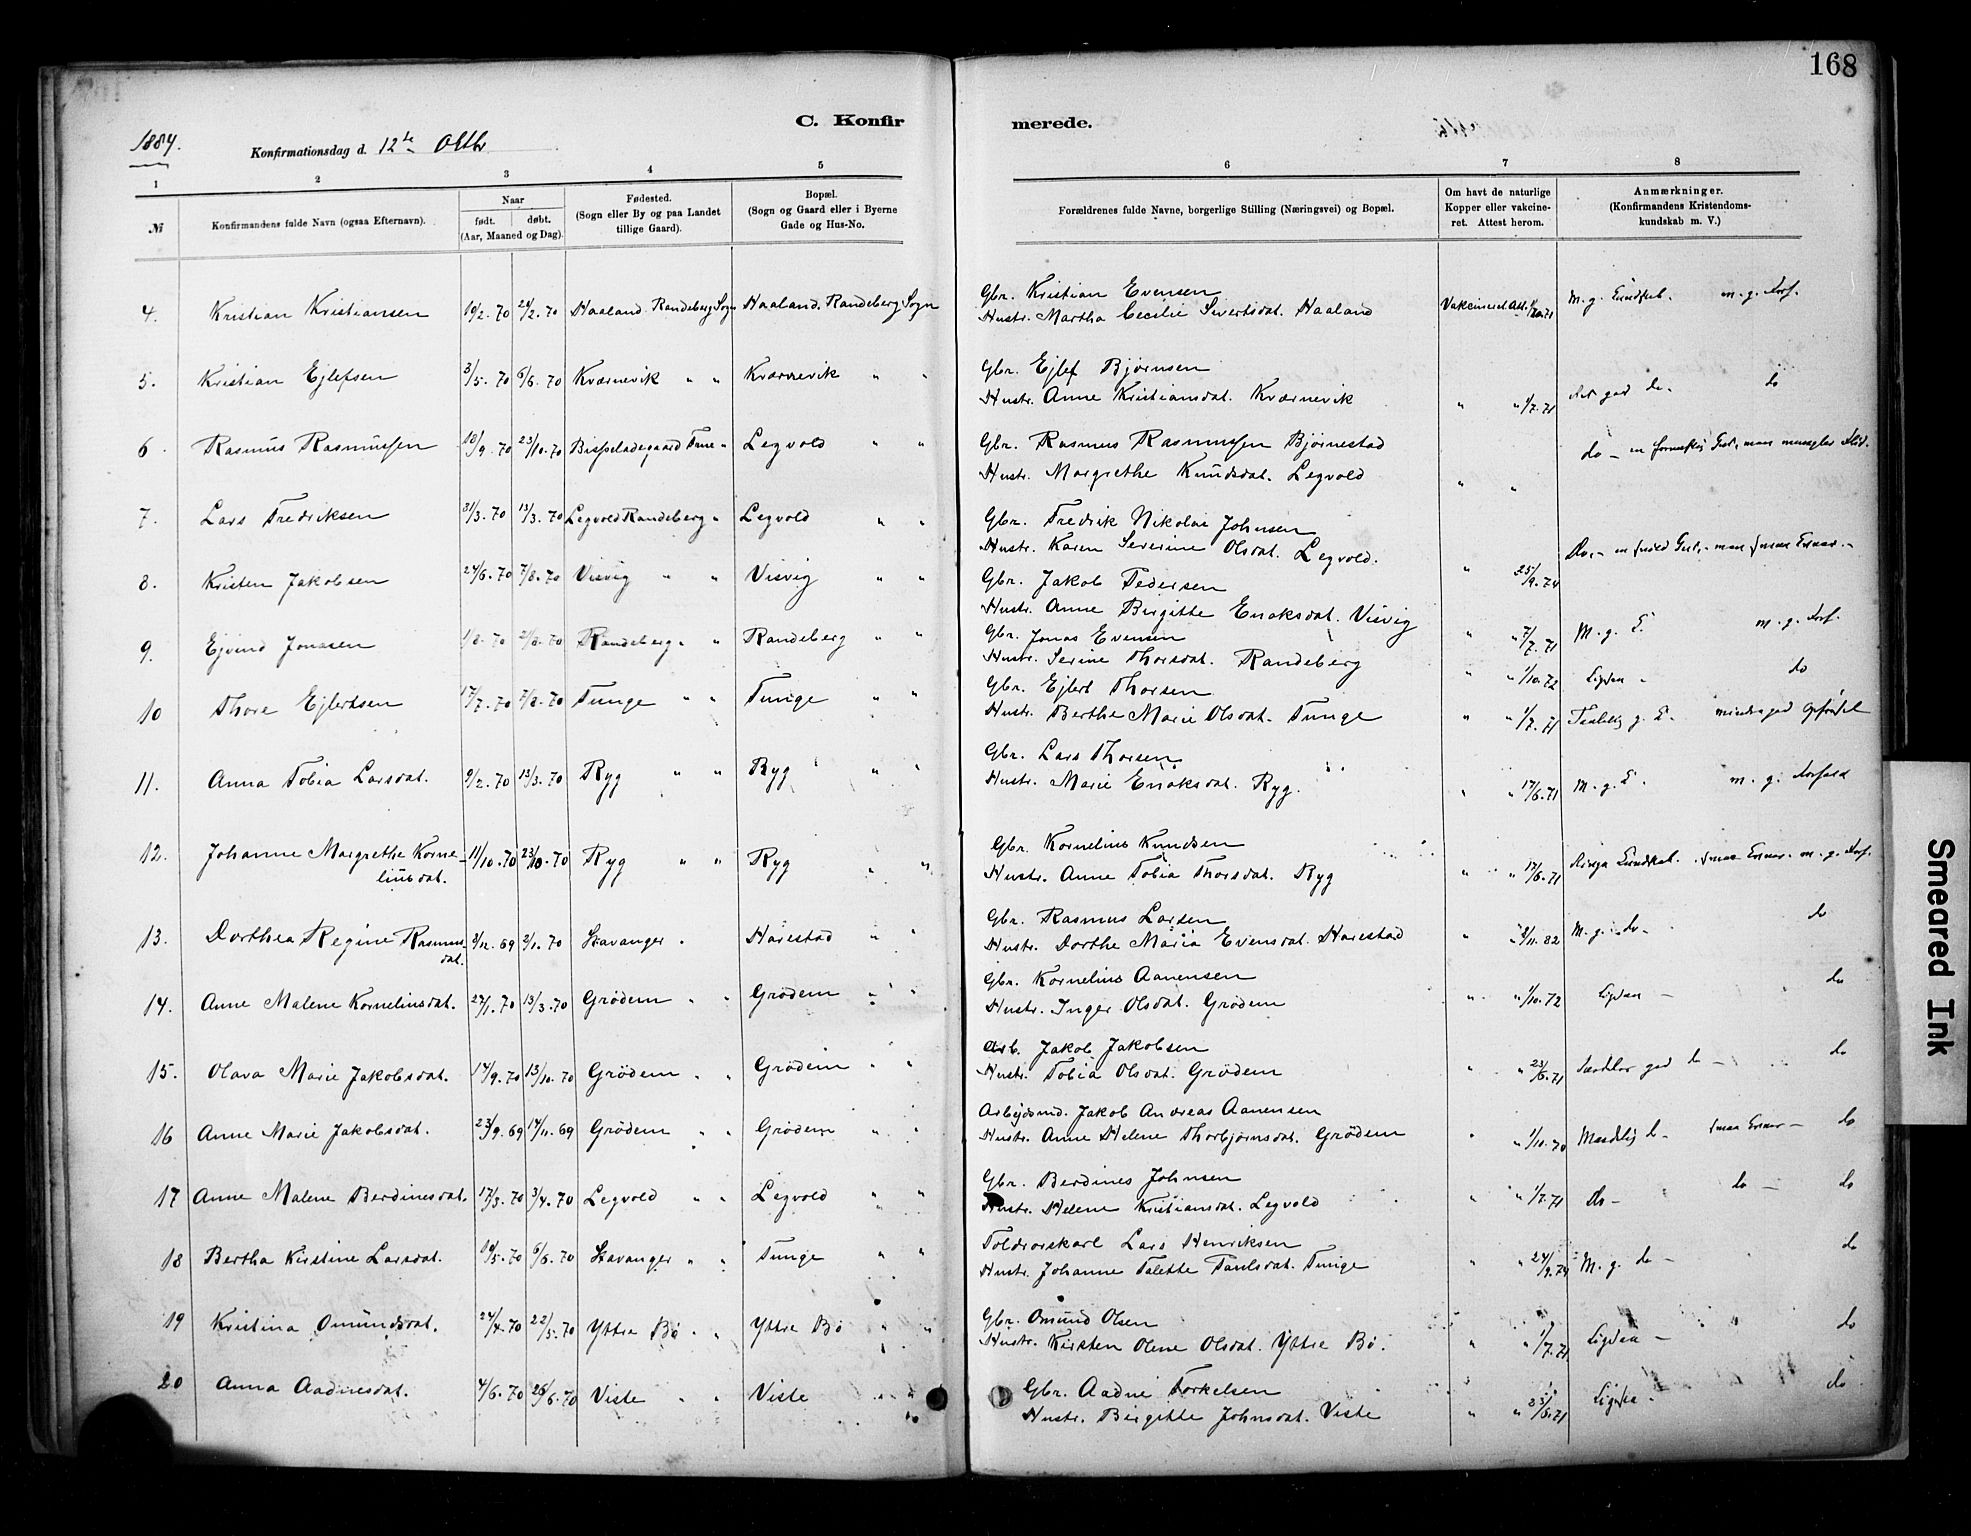 168
C. Konfirmerede.
1884.
Konfirmationsdag d. 12te Oktbr
1 2 3 4 5 6 7 8
№
Konfirmandens fulde Navn (ogsaa Efternavn).
Naar
født. døbt.
(Aar, Maaned og Dag).
Fødested.
(Sogn eller By og paa Landet
tillige Gaard).
Bopæl.
(Sogn og Gaard eller i Byerne
Gade og Hus-No.
Forældrenes fulde Navne, borgerlige Stilling (Næringsvei) og Bopæl.
Om havt de naturlige
Kopper eller vakcine-
ret. Attest herom.
Anmærkninger.
(Konfirmandens Kristendoms-
kundskab m. V.)
4. Kristian Kristiansen 19/2.70 24/2.70 Haaland. Randeberg Sogn Haaland. Randeberg Sogn
Gbr. Kristian Evensen
Hustr. Martha Cecilie Sivertsdat. Haaland Vakcineret Att. M. g. Kundskab. m. g. Forh.
5. Kristian Ejlefsen 3/5.70 6/6.70 Kværnevik " " Kværnevik " "
Gbr. Ejlef Bjørnsen
Hustr. Anne Kristiansdat. Kværnevik " " 1/7.71 god do. do
6. Rasmus Rasmussen 18/9.70 23/10.70 Bispeladegaard Legvold " "
Gbr. Rasmus Rasmussen Bjørnestad
Hustr. Margrethe Knudsdat. Legvold " " do -
7. Lars Fredriksen 31/3.70 13/3.70 Legvold Randeberg " Legvold " "
Gbr. Fredrik Nikolai Johnsen
Hustr. Karen Severine Olsdat. Legvold. " 25/9.74 Do. -
8. Kristen Jakobsen 24/6.70 7/8.70 Visvig " " Visvig " "
Gbr. Jakob Pedersen
Hustr. Anne Birgitte Enoksdat. Visvig " " 7/7.71 M. g. K. m. g. Forh.
9. Ejvind Jonasen 1/8.70 21/8.70 Randeberg " " Randeberg " "
Gbr. Jonas Evensen
Hustr. Serine Thorsdat. Randeberg " " 1/10.72 Ligesaa " do
10 Thore Ejlertsen 17/7.70 7/8.70 Tunge " " Tunge " "
Gbr. Ejlert Thorsen
Hustr. Berthe Marie Olsdat. Tunge " " 1/7.71 Temlig g. K. mindre god Opførsel
11. Anna Tobia Larsdat. 9/2.70 13/3.70 Ryg " " Ryg " "
Gbr. Lars Thorsen
Hustr. Marie Enoksdat. Ryg. " " 17/6.71 M. g. K. m. g. Forhold
12. Johanne Margrethe Korne-
liusdat. 11/10.70 23/10.70 Ryg " " Ryg " "
Gbr. Kornelius Knudsen
Hustr. Anne Tobia Thorsdat. Ryg " " 17/6.71 Ringe Kundskab. smaa Evner. m. g. Forh.
13. Dorthea Regine Rasmus-
dat. 9/12.69 2/1.70 Stavanger " Harestad " "
Gbr. Rasmus Larsen
Hustr. Dorthe Maria Evensdat. Harestad " " 2/11.82 M. g. do. do
14. Anne Malene Korneliusdat. 27/1.70 13/3.70 Grødem " " Grødem " "
Gbr. Kornelius Aanensen
Hustr. Inger Olsdat. Grødem " " 1/10.72 Ligesaa - do
15. Olava Marie Jakobsdat. 14/9.70 13/10.70 Grødem " " Grødem " "
Arb. Jakob Jakobsen
Hustr. Tobia Olsdat. Grødem " " 23/6.71 Særdeles god do - do
16 Anne Marie Jakobsdat. 23/9.69 14/11.69 Grødem " " Grødem " "
Arbejdsmd. Jakob Andreas Aanensen
Hustr. Anne Helene Thorbjørnsdat. Grødem " " 1/10.70 Maadelig do - smaa Evner - do
17 Anne Malene Berdinesdat. 17/3.70 3/4.70 Legvold " " Legvold " "
Gbr. Berdines Johnsen
Hustr. Helene Kristiansdat. Legvold " " 1/7.71 do - do - do
18 Bertha Kirstine Larsdat. 19/5.70 6/6.70 Stavanger " " Tunge " "
Toldrorskarl Lars Henriksen
Hustr. Johanne Talette Paulsdat. Tunge " " 24/9.74 M. g. do - do
19 Kristina Omundsdat. 24/4.70 22/5.70 Yttre Bø " " Yttre Bø " "
Gbr. Omund Olsen
Hustr. Kirsten Olene Olsdat. Yttre Bø. " " 1/7.71 Ligesaa - do
20 Anna Aadnesdat. 4/6.70 26/6.70 Viste " " Viste " "
Gbr. Aadne Torkelsen
Hustr. Birgitte Johnsdat. Viste " " 23/5.71 Ligesaa - do
Smeared Ink